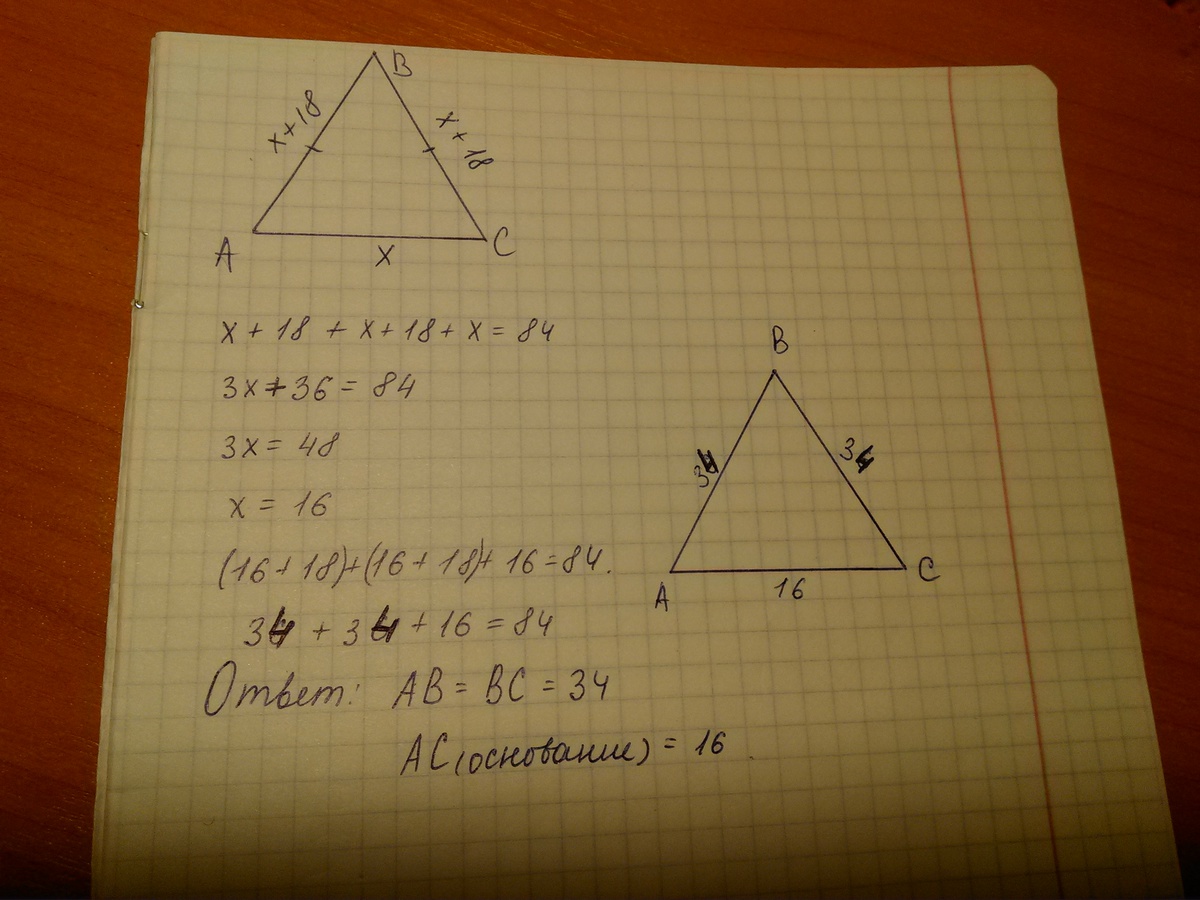 B
x+18
x+18
A
x
C
x + 18 + x + 18 + x = 84
3x + 36 = 84
3x = 48
x = 16
(16 + 18)+(16 + 18)+ 16 = 84.
34 + 34 + 16 = 84
Ответ: AB = BC = 34
AC (основание) = 16
B
34
34
A
16
C